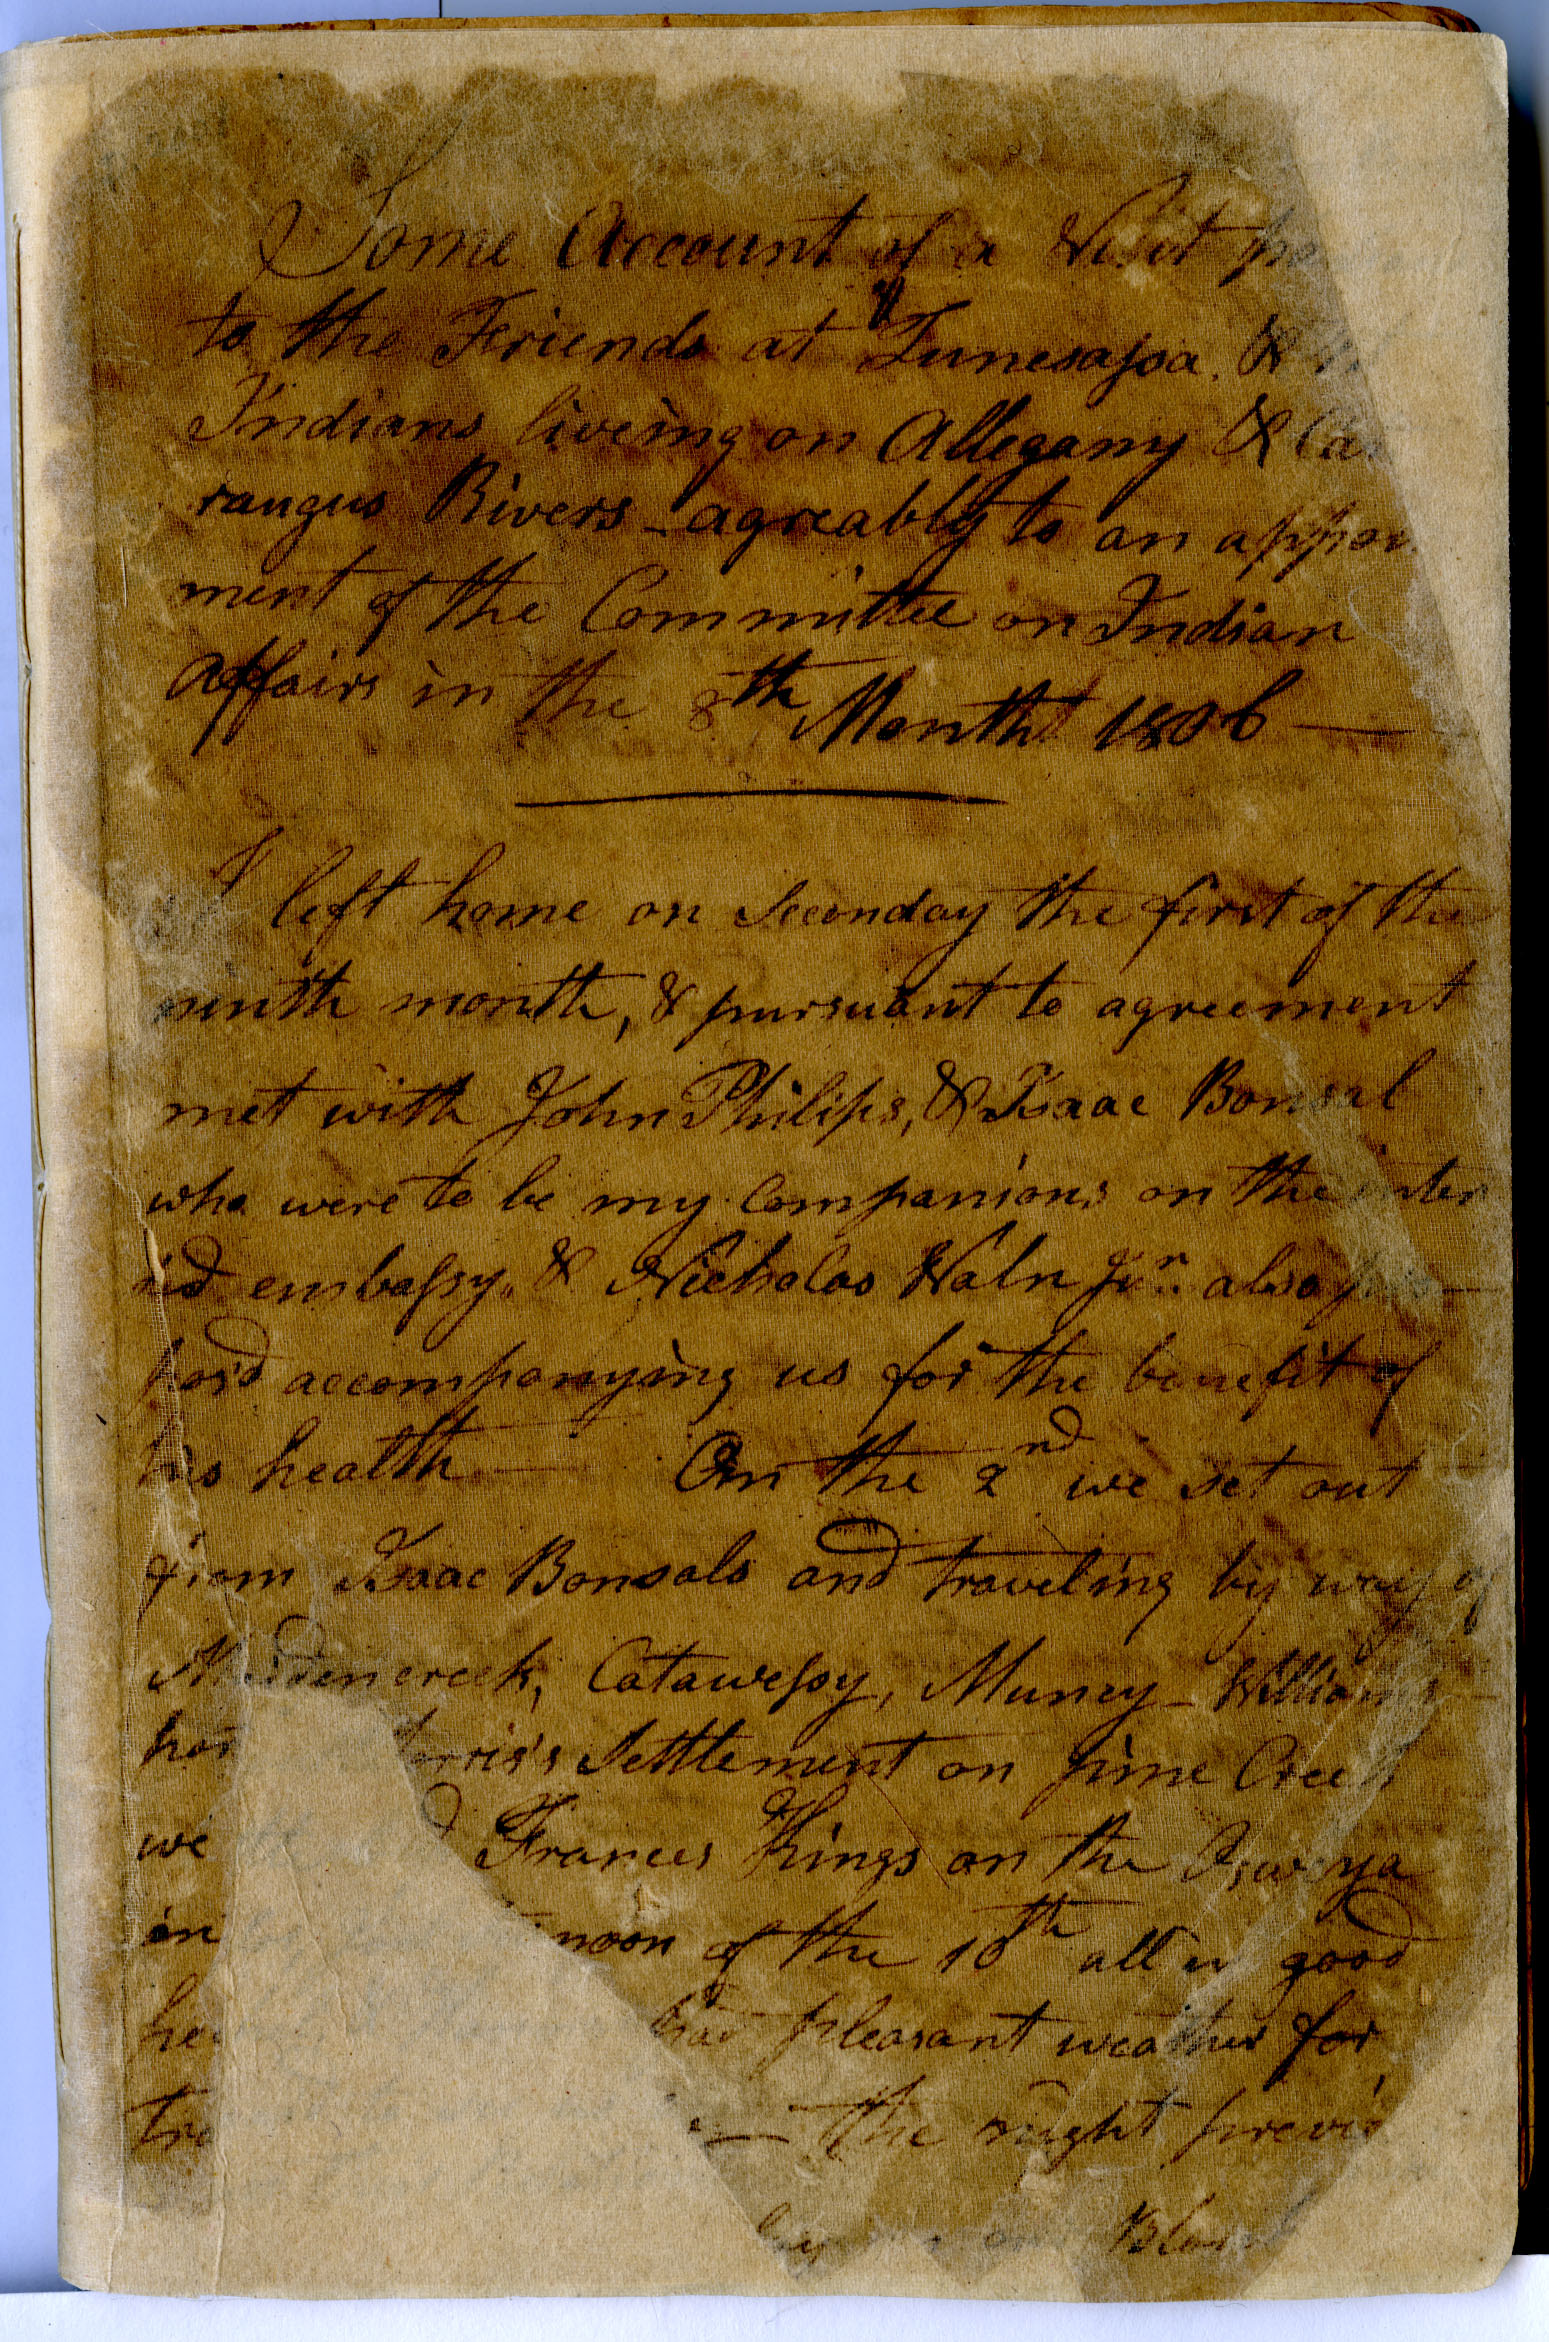 Some Account of a Visit
to the Friends at Tunesassa, &
Indians liveing on Allegany & Ca
raugus Rivers - agreably to an appoin
ment of the Committee on Indian
Affairs in the 8th Month 1806 —
I left home on Seconday the first of the
ninth month, & pursuant to agreement
met with John Philips, & Isaac Bonsal
who were to be my companions on the inten
id embassy, & Nicholas Waln Junr. also pro-
pos'd accompanying us for the benefit of
his health — On the 2nd we set out
from Isaac Bonsals and traveling by way of
Maidencreek, Catawessy, Muncy - Williams-
por orris's Settlement on pine Creek
we d Frances Kings on the Oswaya
in noon of the 10th all in good
he had pleasant weather for
tra — the night previo